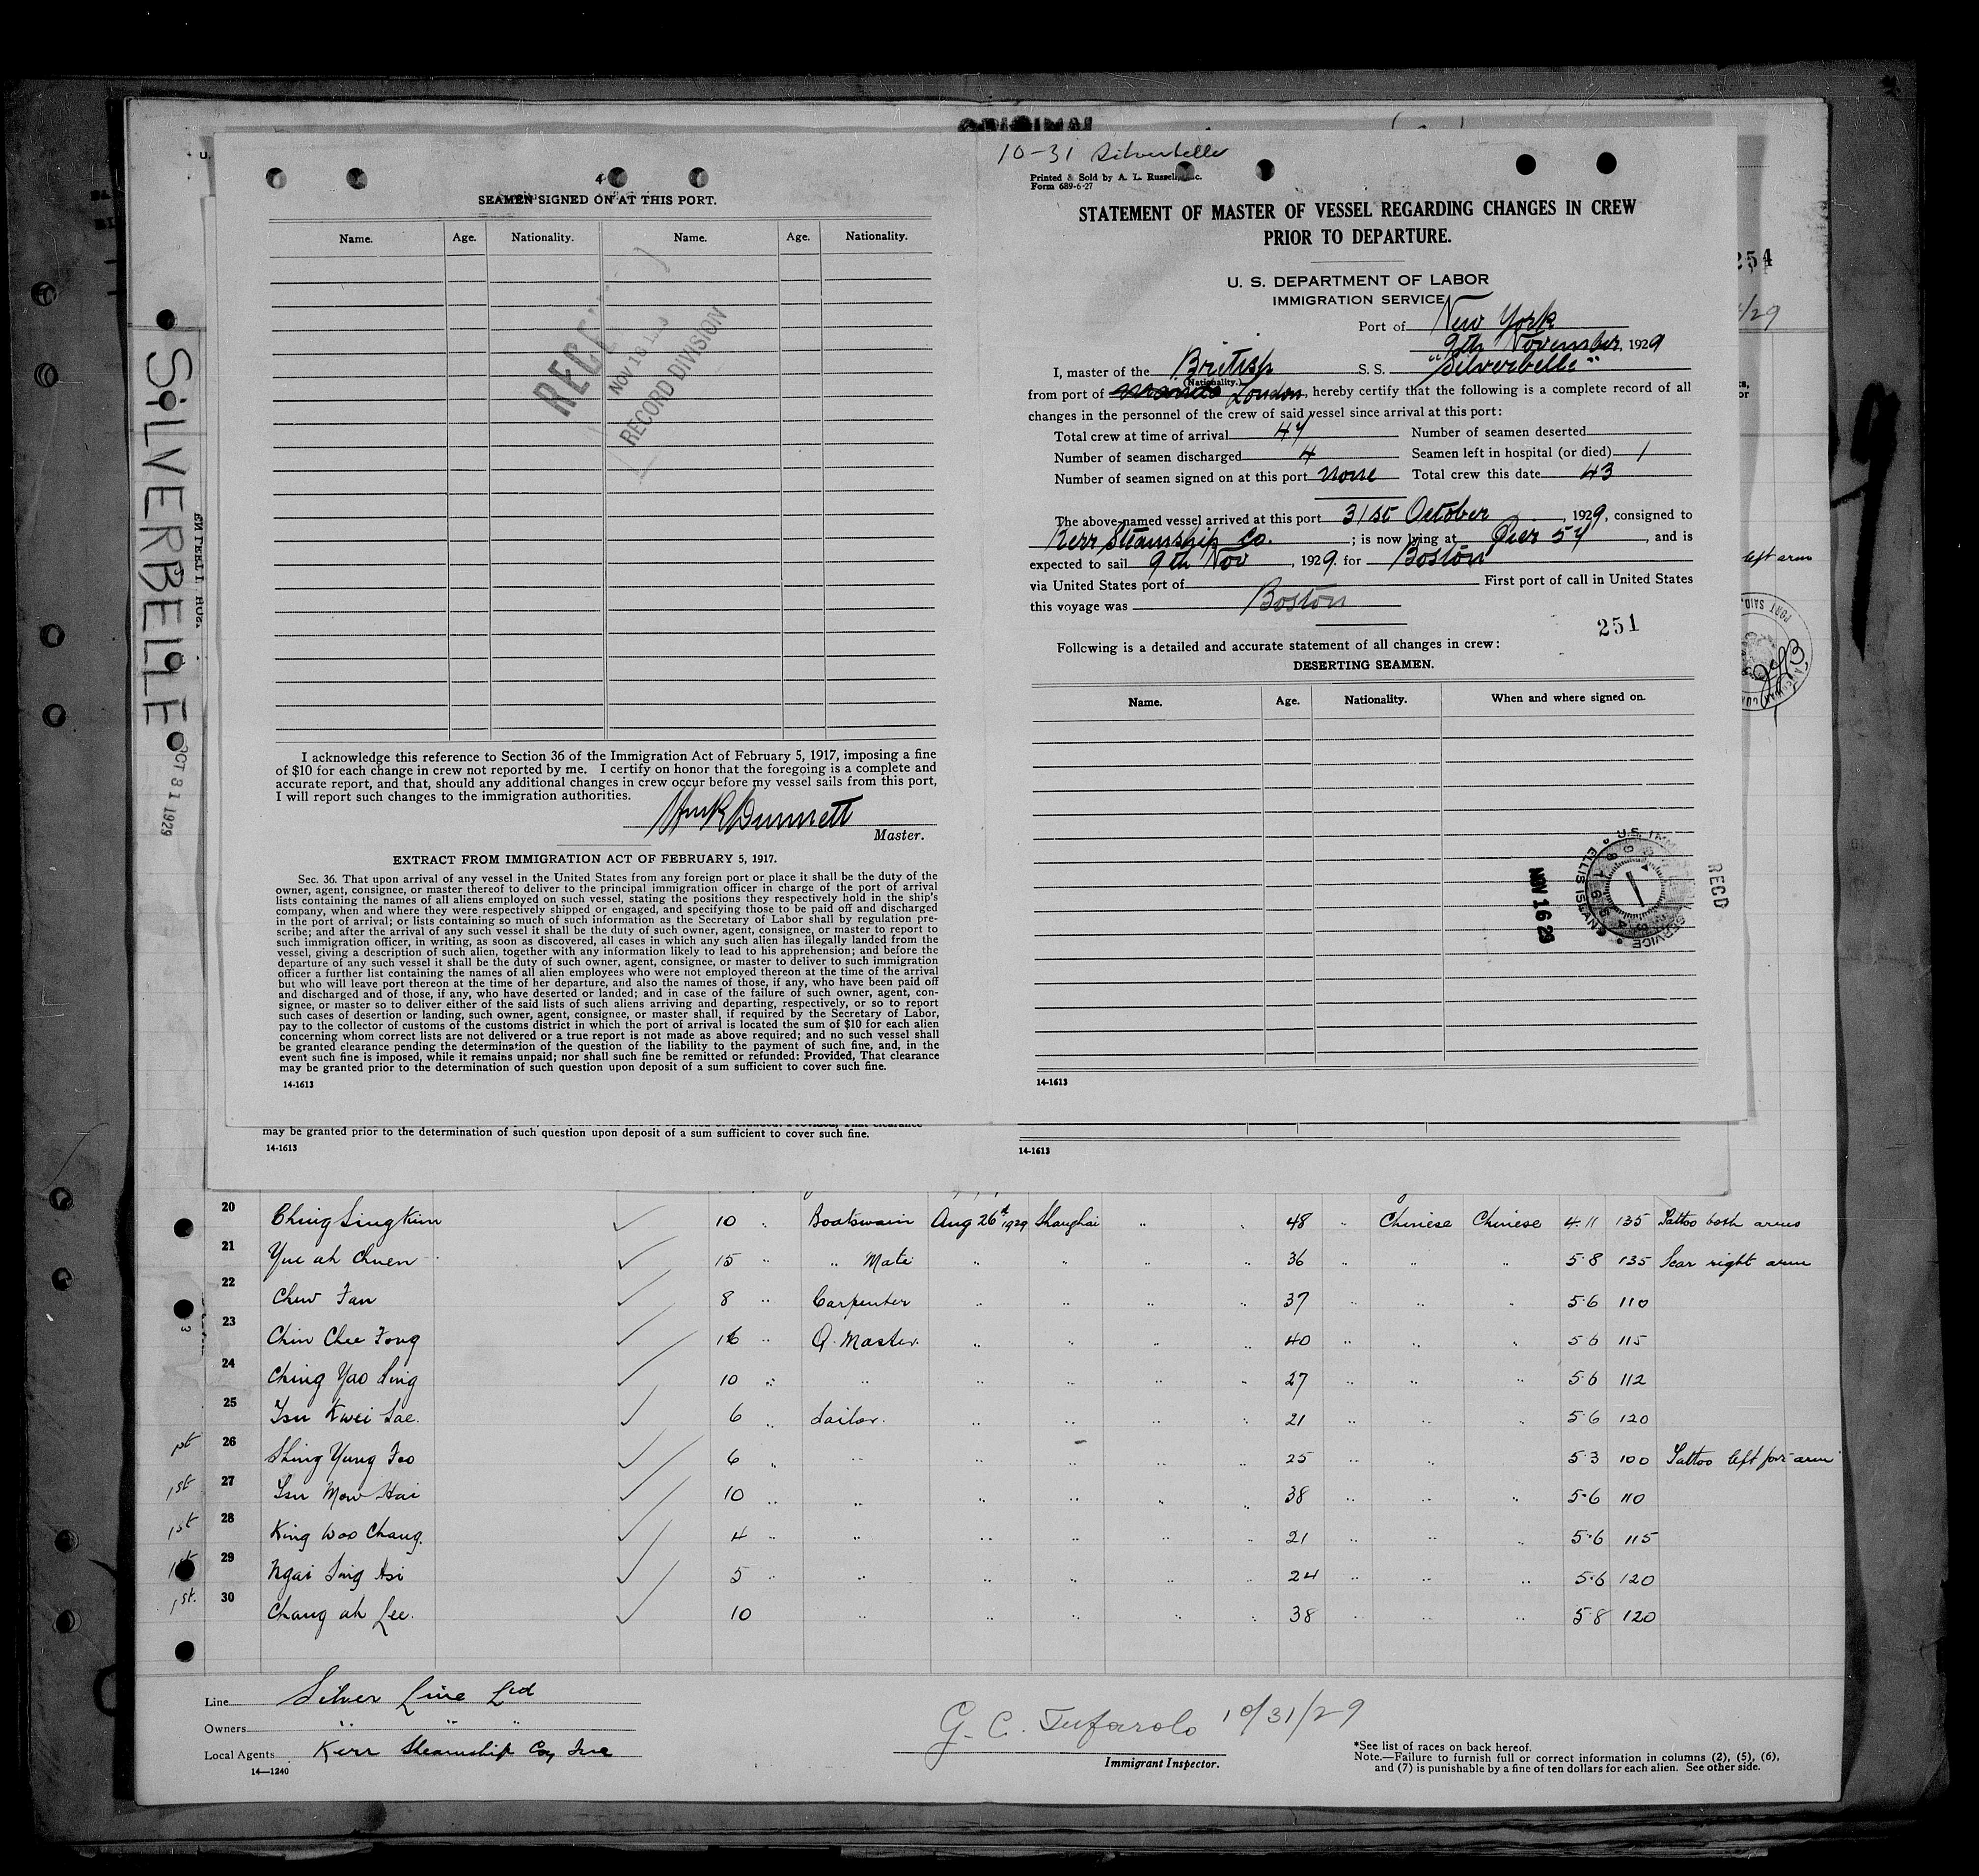 ORIGINAL
10-31 Silverbelle
Printed & Sold by A. L. Russell, Inc.
Form 689-6-27
4
SEAMEN SIGNED ON AT THIS PORT.
Name. Age. Nationality. Name. Age. Nationality.
NOV 18
RECORD DIVISION
I acknowledge this reference to Section 36 of the Immigration Act of February 5, 1917, imposing a fine
of $10 for each change in crew not reported by me. I certify on honor that the foregoing is a complete and
accurate report, and that, should any additional changes in crew occur before my vessel sails from this port,
I will report such changes to the immigration authorities.
Dunnett
Master.
EXTRACT FROM IMMIGRATION ACT OF FEBRUARY 5, 1917.
Sec. 36. That upon arrival of any vessel in the United States from any foreign port or place it shall be the duty of the
owner, agent, consignee, or master thereof to deliver to the principal immigration officer in charge of the port of arrival
lists containing the names of all aliens employed on such vessel, stating the positions they respectively hold in the ship's
company, when and where they were respectively shipped or engaged, and specifying those to be paid off and discharged
in the port of arrival; or lists containing so much of such information as the Secretary of Labor shall by regulation pre-
scribe; and after the arrival of any such vessel it shall be the duty of such owner, agent, consignee, or master to report to
such immigration officer, in writing, as soon as discovered, all cases in which any such alien has illegally landed from the
vessel, giving a description of such alien, together with any information likely to lead to his apprehension; and before the
departure of any such vessel it shall be the duty of such owner, agent, consignee, or master to deliver to such immigration
officer a further list containing the names of all alien employees who were not employed thereon at the time of the arrival
but who will leave port thereon at the time of her departure, and also the names of those, if any, who have been paid off
and discharged and of those, if any, who have deserted or landed; and in case of the failure of such owner, agent, con-
signee, or master so to deliver either of the said lists of such aliens arriving and departing, respectively, or so to report
such cases of desertion or landing, such owner, agent, consignee, or master shall, if required by the Secretary of Labor,
pay to the collector of customs of the customs district in which the port of arrival is located the sum of $10 for each alien
concerning whom correct lists are not delivered or a true report is not made as above required; and no such vessel shall
be granted clearance pending the determination of the question of the liability to the payment of such fine, and, in the
event such fine is imposed, while it remains unpaid; nor shall such fine be remitted or refunded: Provided, That clearance
may be granted prior to the determination of such question upon deposit of a sum sufficient to cover such fine.
14-1613
STATEMENT OF MASTER OF VESSEL REGARDING CHANGES IN CREW
PRIOR TO DEPARTURE.
U. S. DEPARTMENT OF LABOR
IMMIGRATION SERVICE
Port of New York
9th November, 1929
I, master of the British S. S. "Silverbelle"
(Nationality.)
from port of London, hereby certify that the following is a complete record of all
changes in the personnel of the crew of said vessel since arrival at this port:
Total crew at time of arrival 47 Number of seamen deserted
Number of seamen discharged 4 Seamen left in hospital (or died) 1
Number of seamen signed on at this port none Total crew this date 43
The above-named vessel arrived at this port 31st October, 1929, consigned to
Kerr Steamship Co.; is now lying at Pier 57, and is
expected to sail 9th Nov, 1929. for Boston
via United States port of First port of call in United States
this voyage was Boston
251
Following is a detailed and accurate statement of all changes in crew:
DESERTING SEAMEN.
Name. Age. Nationality. When and where signed on.
ELLIS ISLAND
SERVICE
NOV 16 29
RECD
14-1613
254
/29
left arm
PORT SAID
SILVERBELLE
OCT 31 1929
may be granted prior to the determination of such question upon deposit of a sum sufficient to cover such fine.
14-1613
14-1613
20 Ching Sing Kim 10 " Boatswain Aug 26th 1929 Shanghai " " 48 " Chinese Chinese 4.11 135 Tattoo both arms
21 Yue ah Chuen 15 " " Mate " " " " 36 " " " 5.8 135 Scar right arm
22 Chew Fan 8 " Carpenter " " " " 37 " " " 5.6 110
23 Chin Chee Fong 16 " Q. Master. " " " " 40 " " " 5 6 115
24 Ching Yao Ling 10 " " " " " " 27 " " " 5.6 112
25 Tsu Kwei Sae. 6 " Sailor. " " " " 21 " " " 5.6 120
1st 26 Shing Yung Foo 6 " " " " " " 25 " " " 5.3 100 Tattoo left fore-arm
1st 27 Tsu Mow Hai 10 " " " " " " 38 " " " 5.6 110
1st 28 King Woo Chang. 4 " " " " " " 21 " " " 5.6 115
1st 29 Ngai Sing Hsi 5 " " " " " " 24 " " " 5.6 120
1st. 30 Chang ah Lee. 10 " " " " " 38 " " " 5.8 120
Line Silver Line Ltd
Owners " " "
Local Agents Kerr Steamship Coy Inc
14—1240
G. C. Tufarolo 10/31/29
Immigrant Inspector.
*See list of races on back hereof.
Note.—Failure to furnish full or correct information in columns (2), (5), (6),
and (7) is punishable by a fine of ten dollars for each alien. See other side.